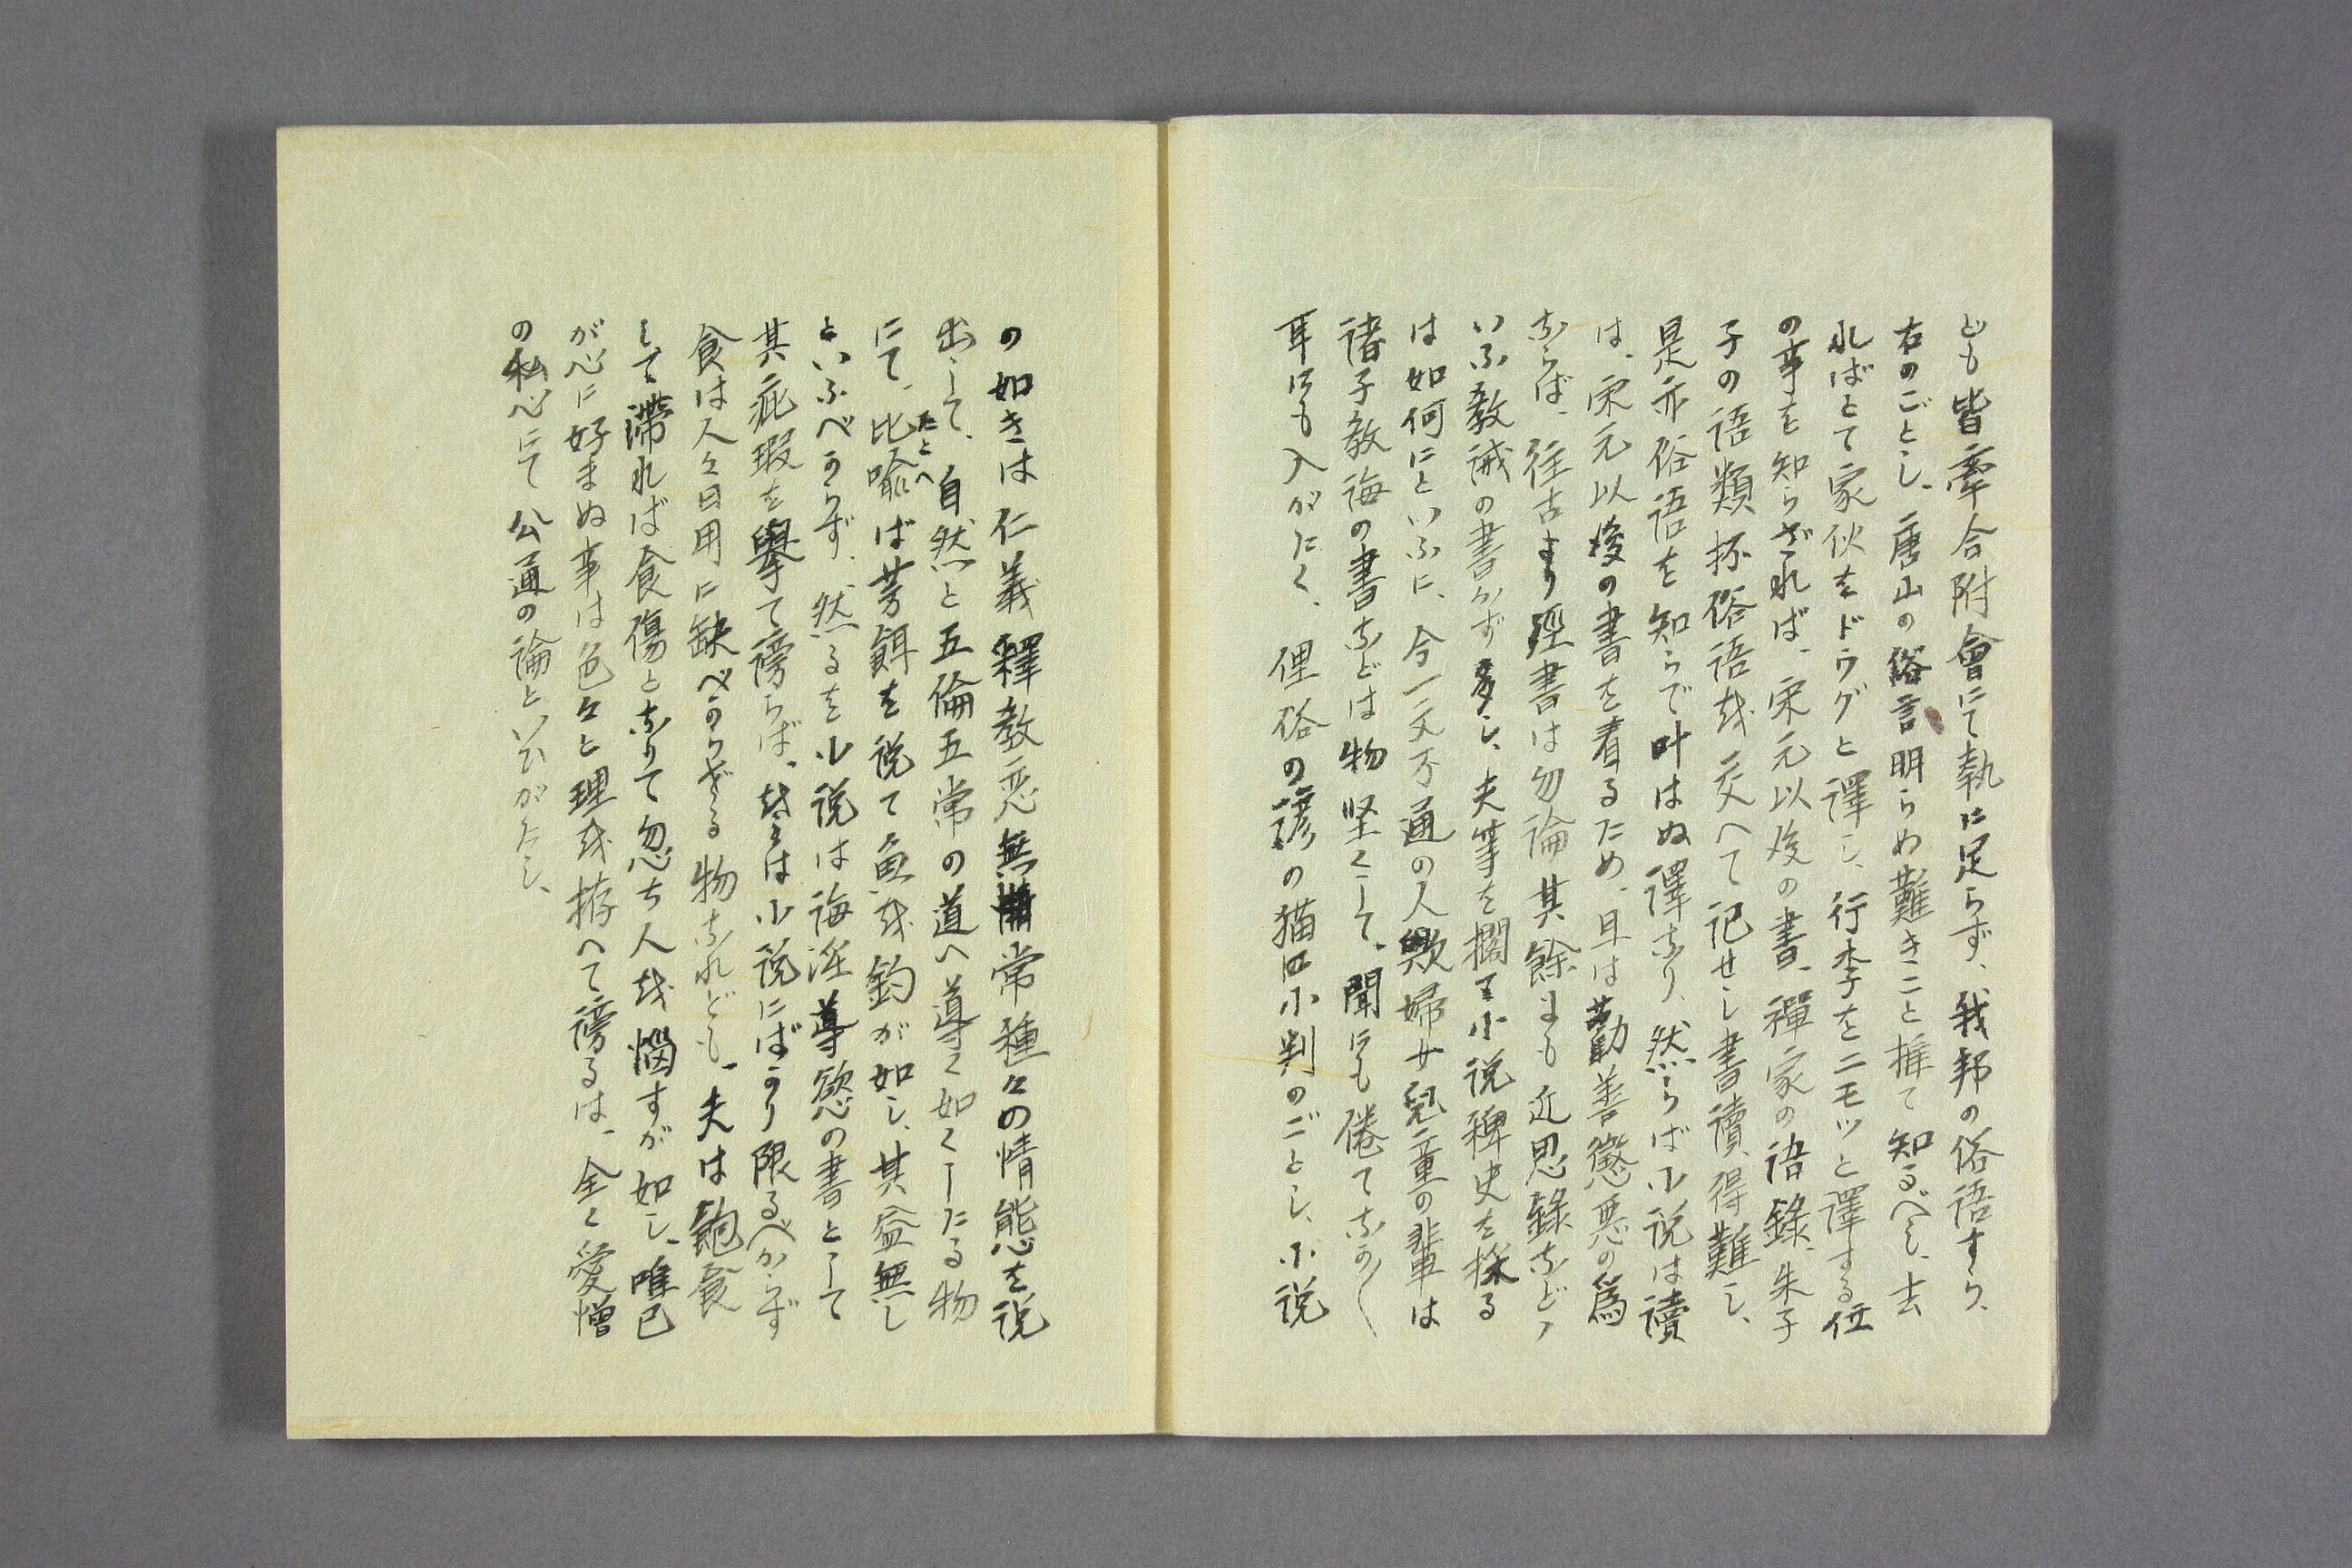 ども皆牽合附會にて執に足らず、我邦の俗語すら、
右のごとし、唐山の俗言明らめ難きこと推て知るべし、去
ればとて家伙をドウグと譯し、行李をニモツと譯する位
の事を知らざれば、宋元以後の書、禪家の語錄、朱子
子の語類抔俗語越交へて記せし書讀得難し、
是亦俗語を知らで叶はぬ譯なり、然らば小説は讀
は、宋元以後の書を看るため、且は勸善懲惡の爲
ならば、往古より經書は勿論其餘にも近思錄など丶
いふ教誡の書かず多し、夫等を擱て小説稗史を採る
は如何にといふに、今一文不通の人歟婦女兒童の輩は
諸子教誨の書などは物堅くして、聞にも倦てなか〱
耳にも入がたく、俚俗の諺の猫に小判のごとし、小説
の如きは仁義釋教恋無常種々の情態を説
出して、自然と五倫五常の道へ導く如くしたる物
にて、比喩ば芳餌を説て魚越釣が如し、其益無し
たとへ
といふべからず、然るを小説は誨淫導慾の書として
其疵瑕を擧て謗らば、はは小説にばかり限るべからず
食は人々日用に缺べからざる物なれども、夫は飽食
して滯れば食傷となりて忽ち人越惱すが如し、唯己
が心に好まぬ事は色々と理越拵へて謗るは、全く愛憎
の私心にて公通の論と云がたし、